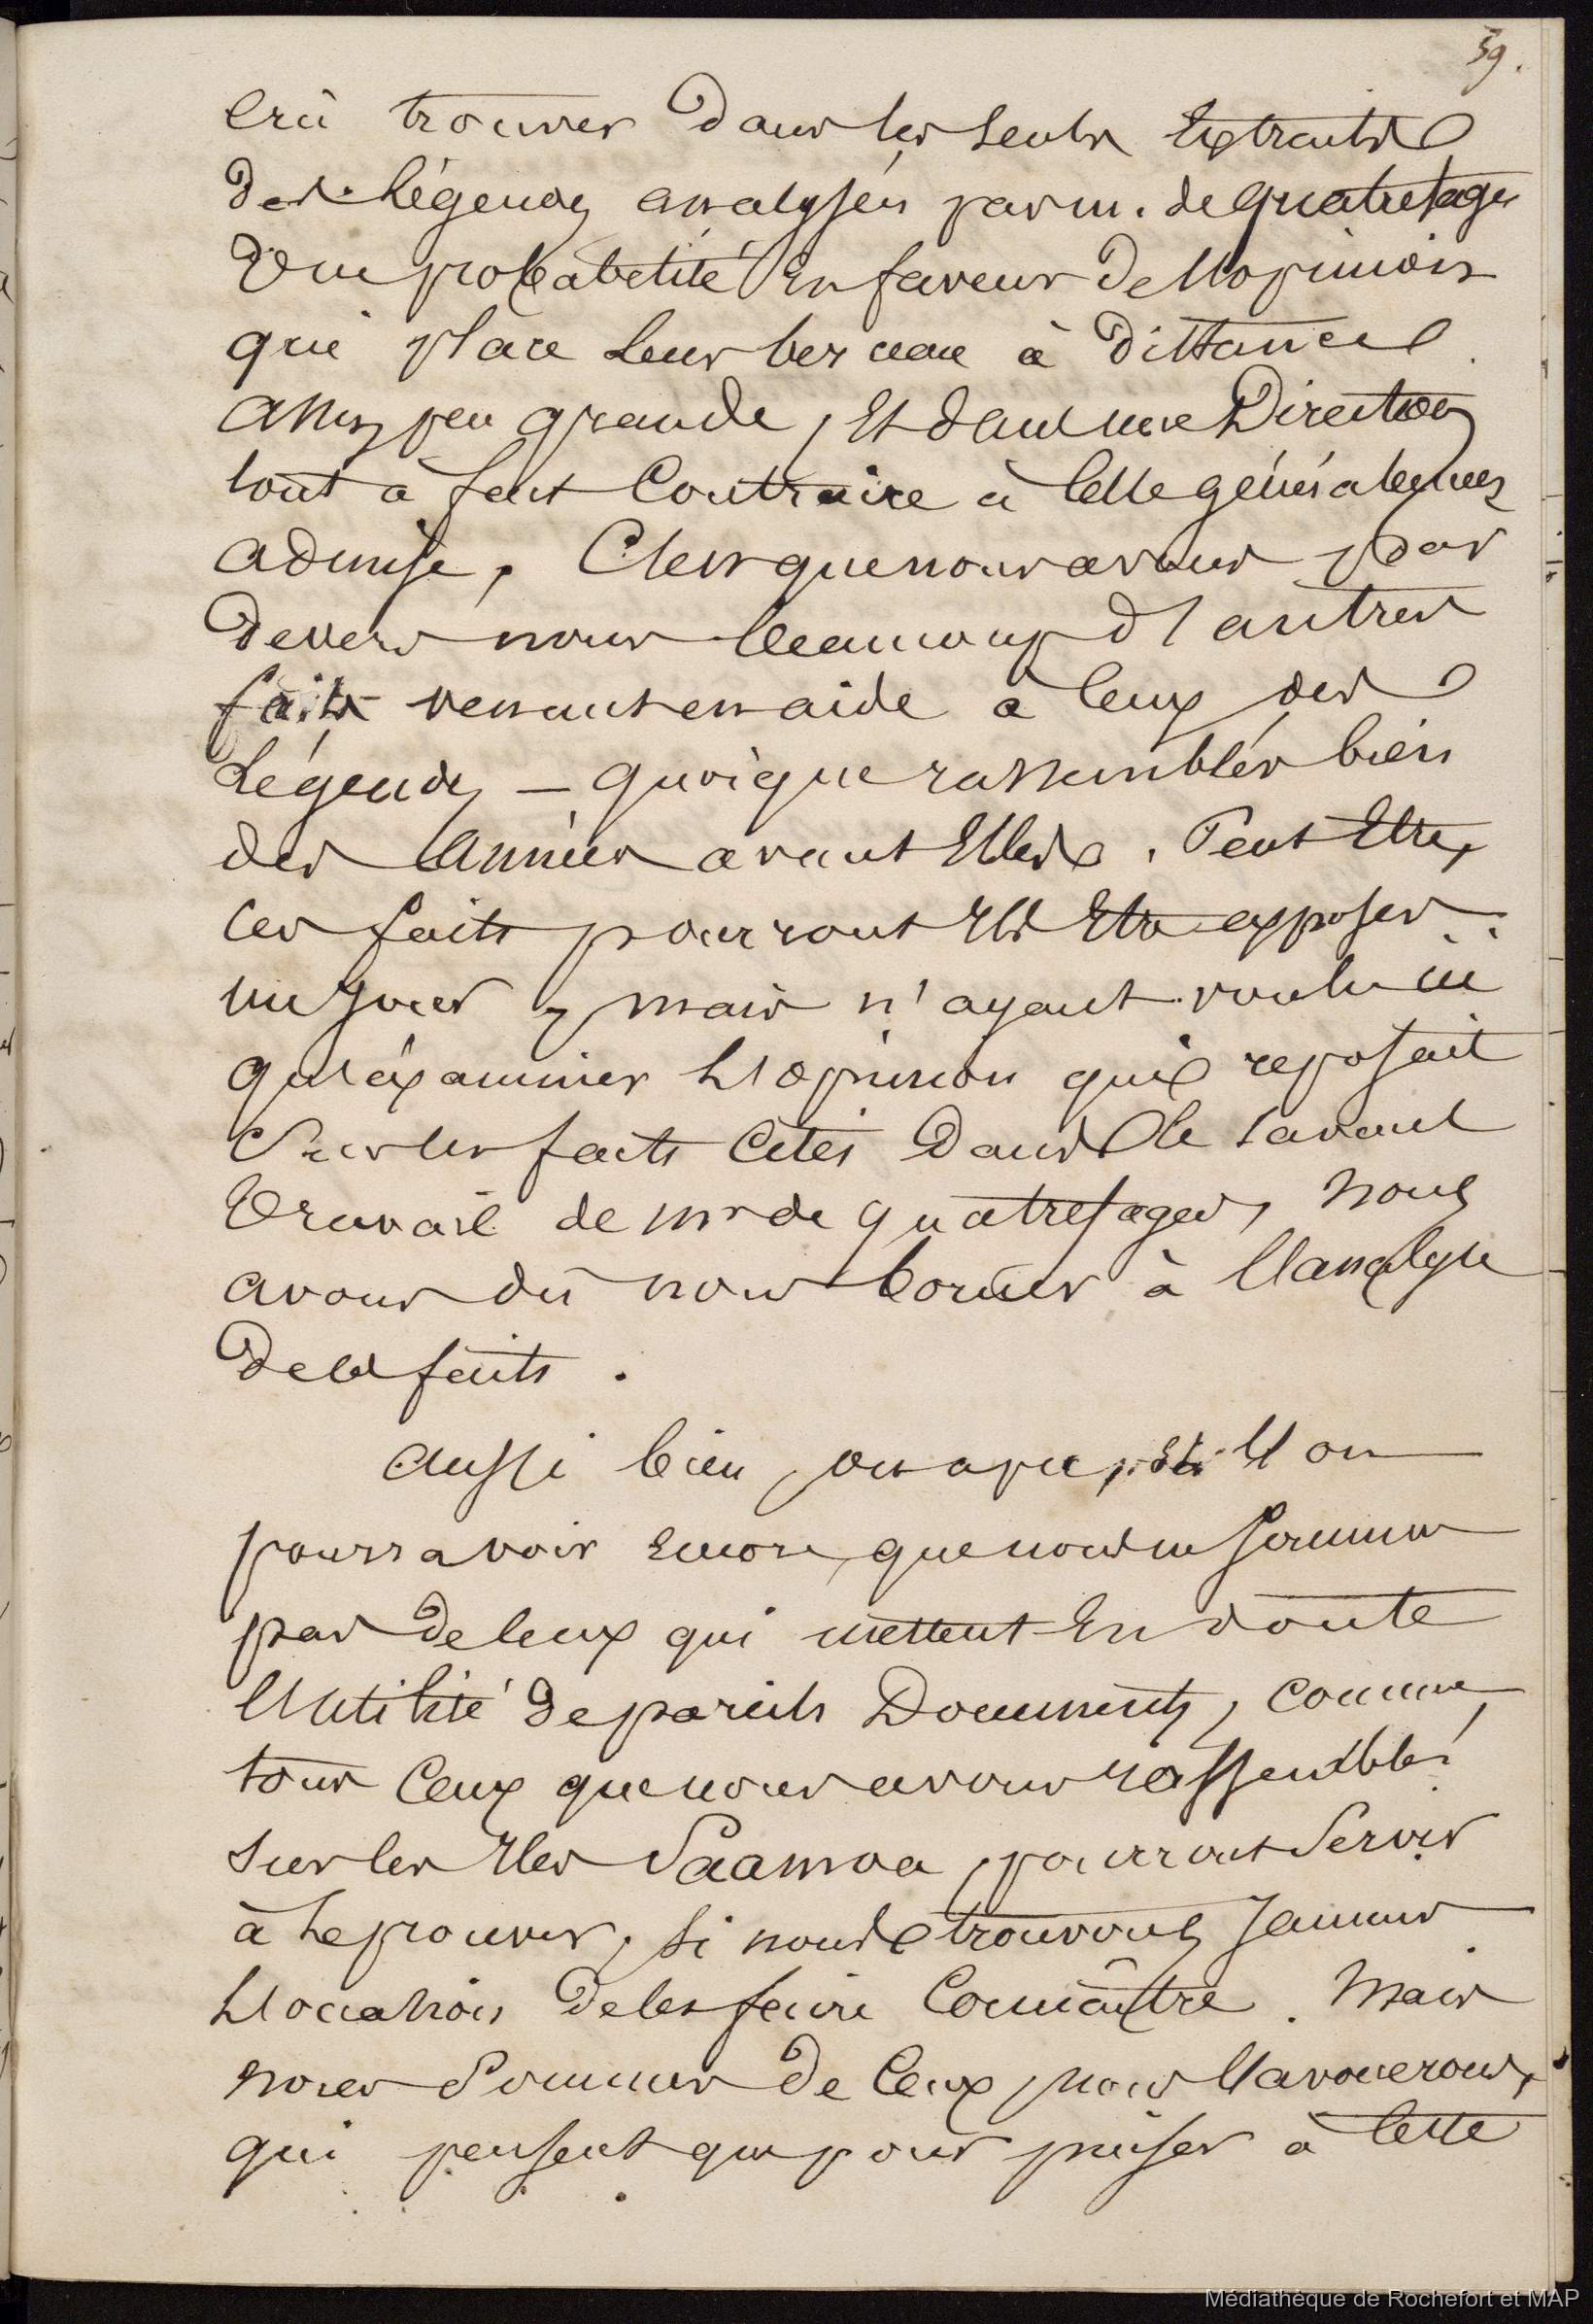 59.
crû trouver dans les seuls Extraits
des légendes analysées par m. de quatrefages
une probabilité En faveur de l'opinion
qui place leur berceau à distance
assez peu grande, Et dans une Direction
tout à fait Contraire à celle généralement
admise. C'est que nous avons par
devers nous beaucoup d'autres
faits venant en aide à ceux des
légendes — quoique rassemblés bien
des années avant Elles. Peut Etre,
ces faits pourront ils Etre exposés
un jour, mais n'ayant voulu ici
qu'éxaminer l'opinion qui reposait
Sur les faits Cités dans le savant
travail de mr de quatrefages, nous
avons dû nous borner à l'analyse
de ces faits.
aussi bien, on a pu, Et l'on
pourra voir encore, que nous ne sommes
pas de ceux qui mettent En doute
l'utilité de pareils Documents, comme,
tous Ceux que nous avons rassemblés
sur les Iles Saamoa, pourront Servir
à le prouver, si nous trouvons Jamais
l'occasion de les faire Connaître. Mais
nous Sommes de Ceux, nous l'avouerons,
qui pensent que pour puiser à cette
Médiathèque de Rochefort et MAP